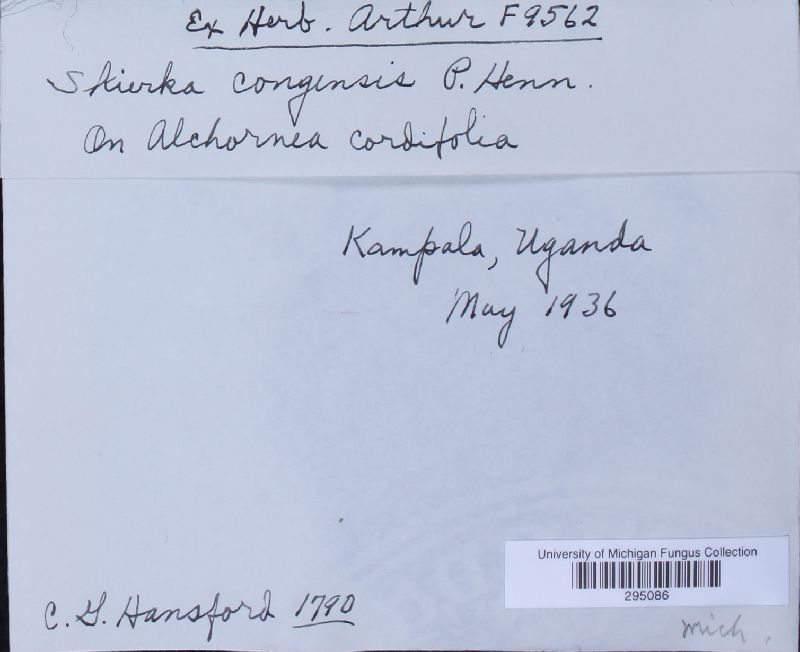 Ex Herb. Arthur F9562
Skierka congensis P. Henn.
On Alchornea cordifolia
Kampala, Uganda
May 1936
University of Michigan Fungus Collection
295086
C. G. Hansford 1790
mich.